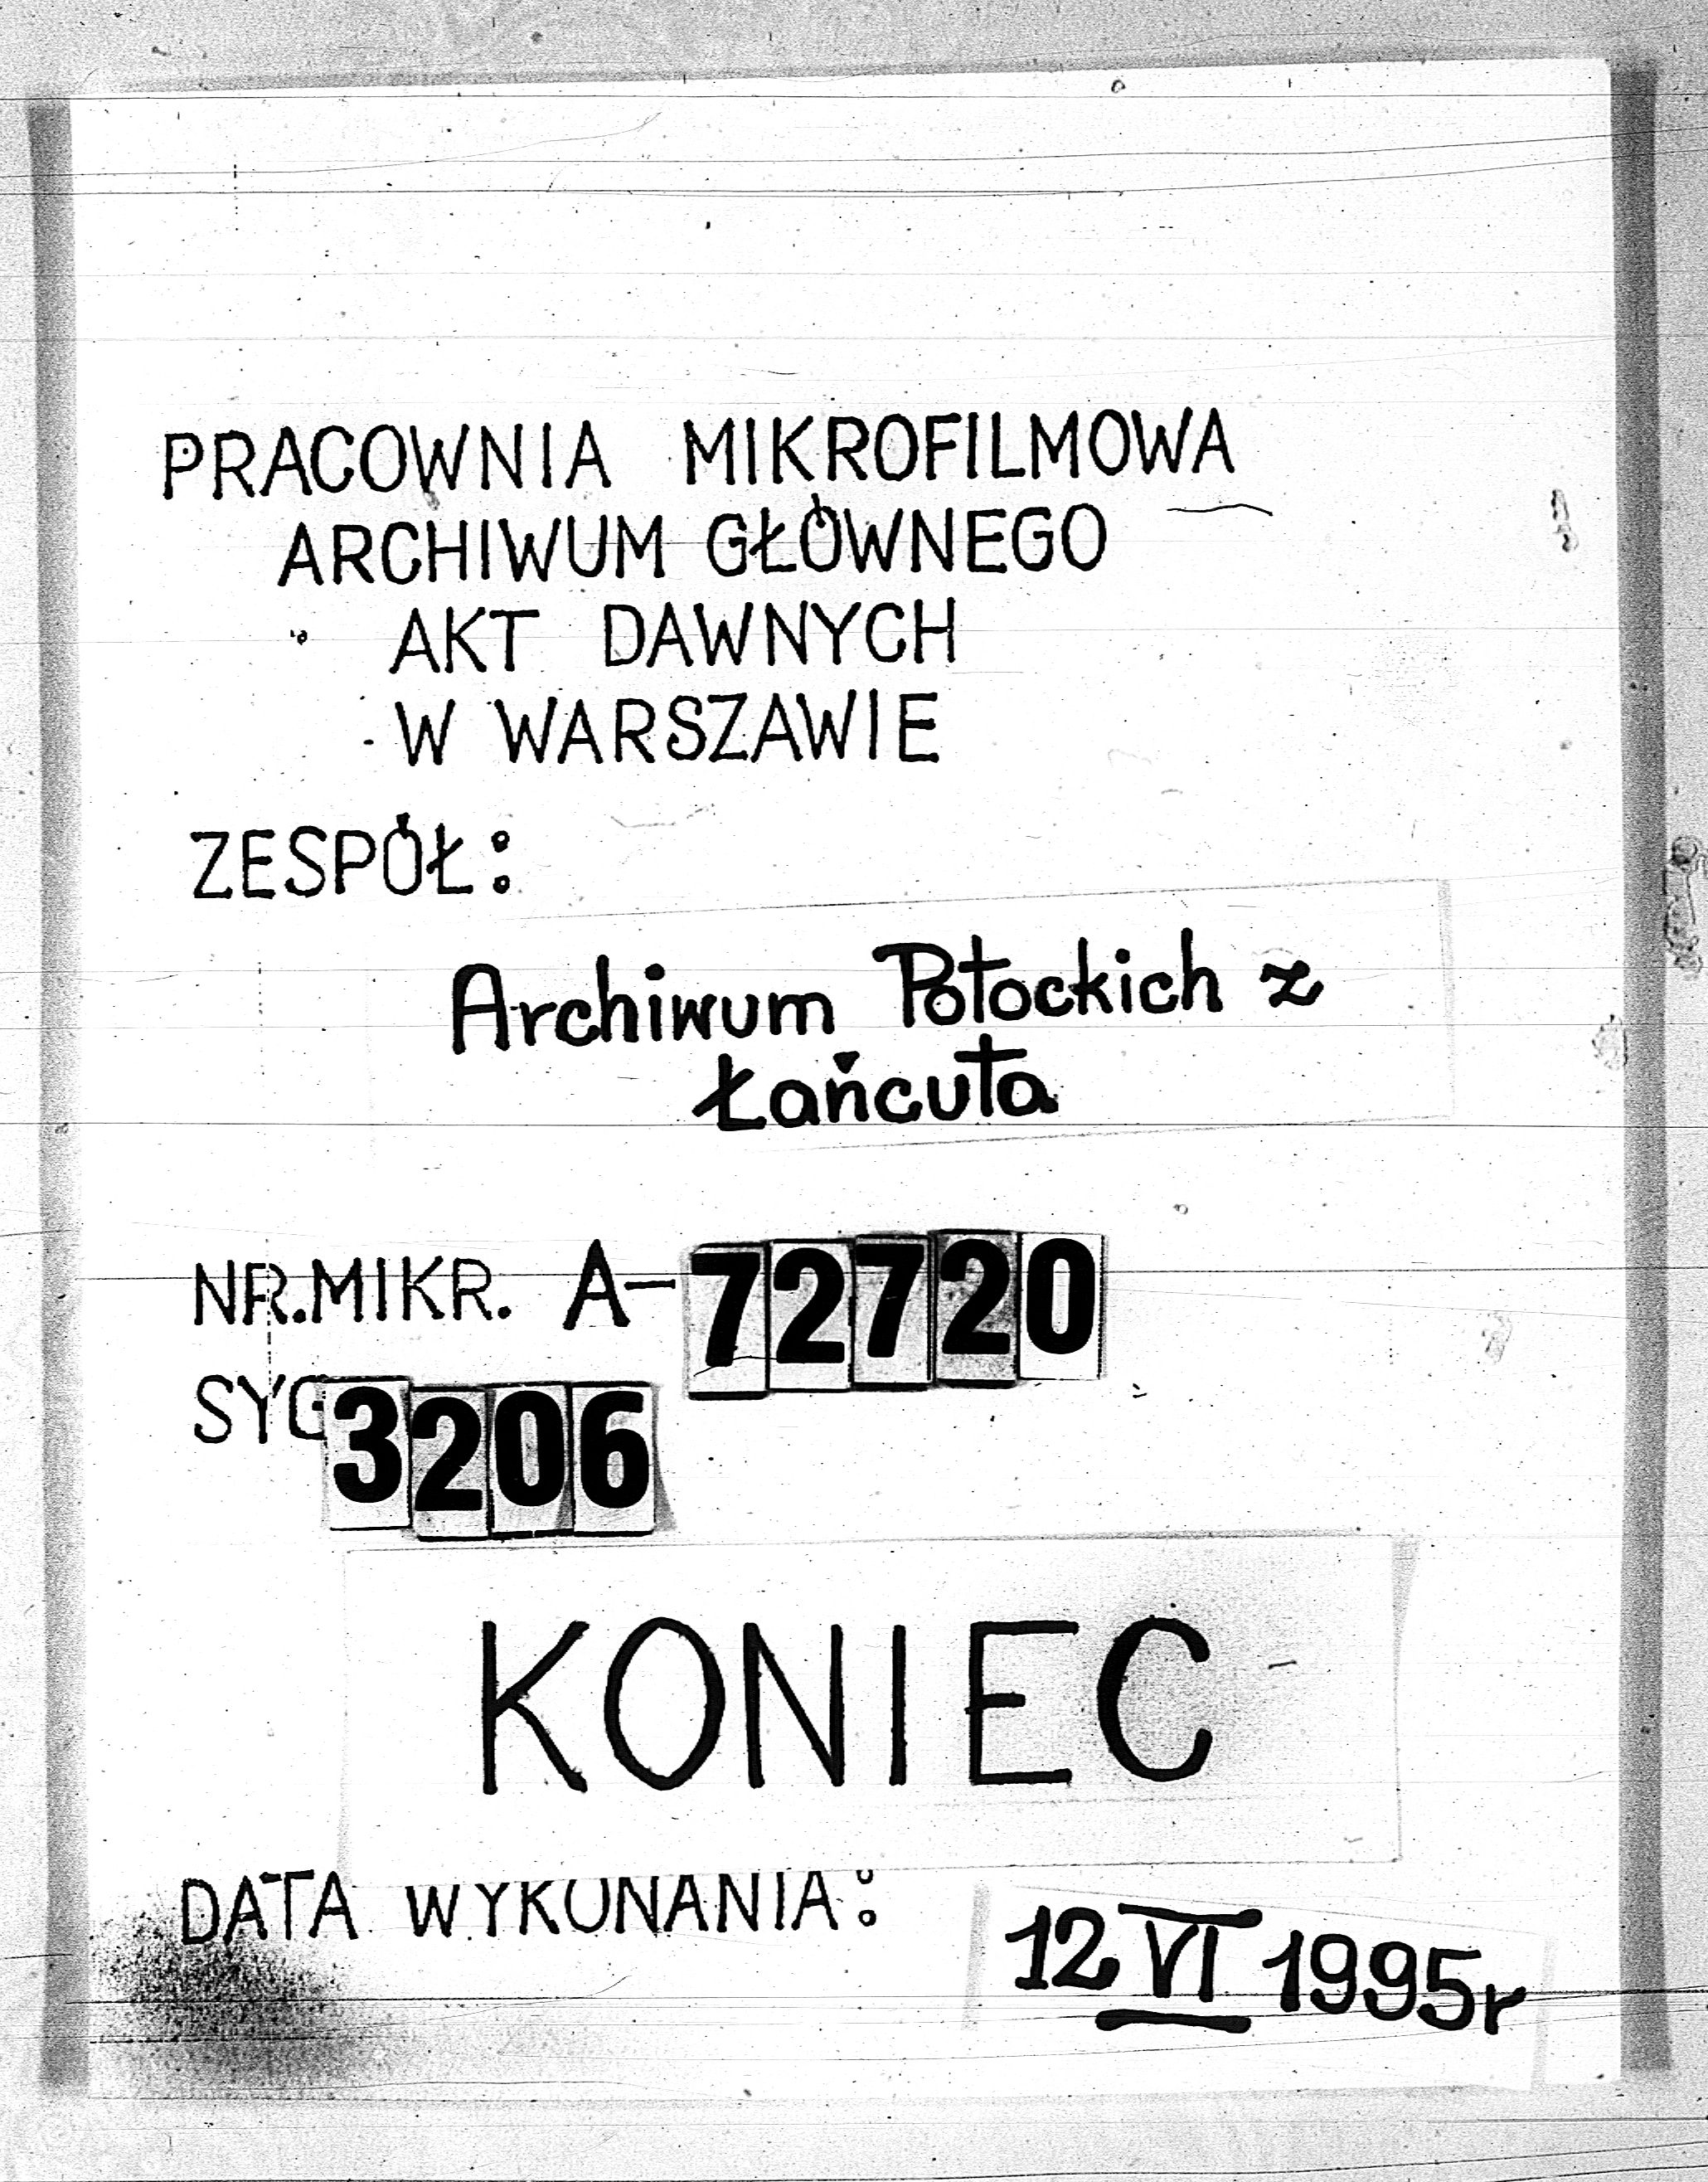 PRACOWNIA MIKROFILMOWA
ARCHIWUM GŁÓWNEGO
AKT DAWNYCH
W WARSZAWIE
ZESPÓŁ:
Archiwum Potockich z
Łańcuta
NR.MIKR. A-72720
SYG 3206
KONIEC
DATA WYKONANIA: 12 VI 1995r